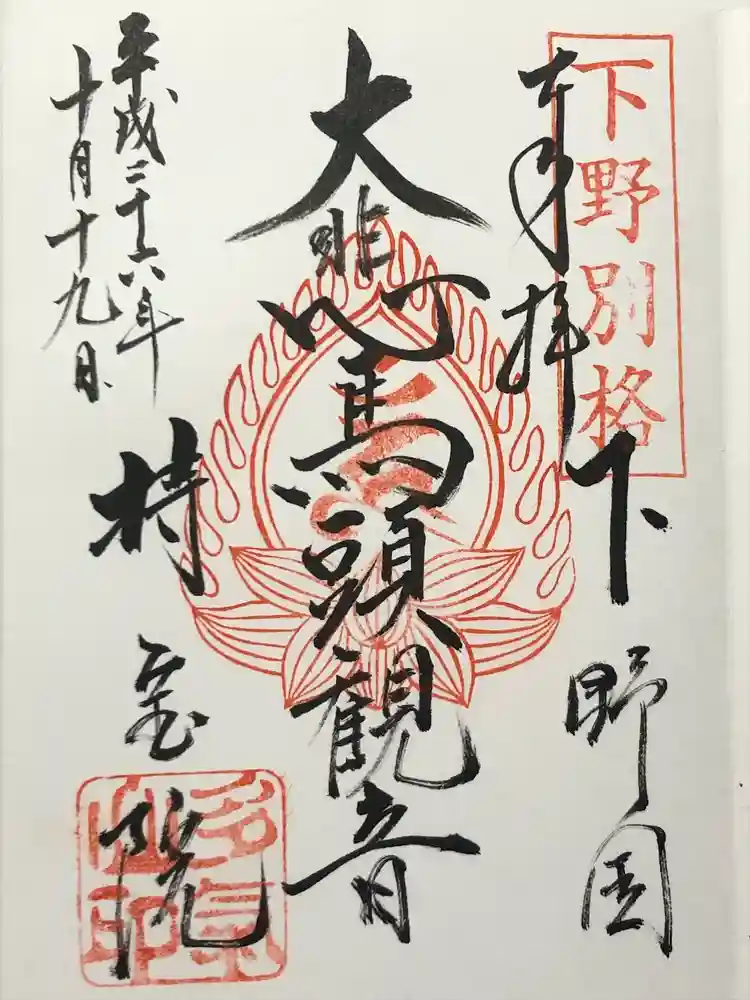 下野別格
奉拝
下野国
大悲
馬頭観音
平成二十六年
十月十九日
持宝院